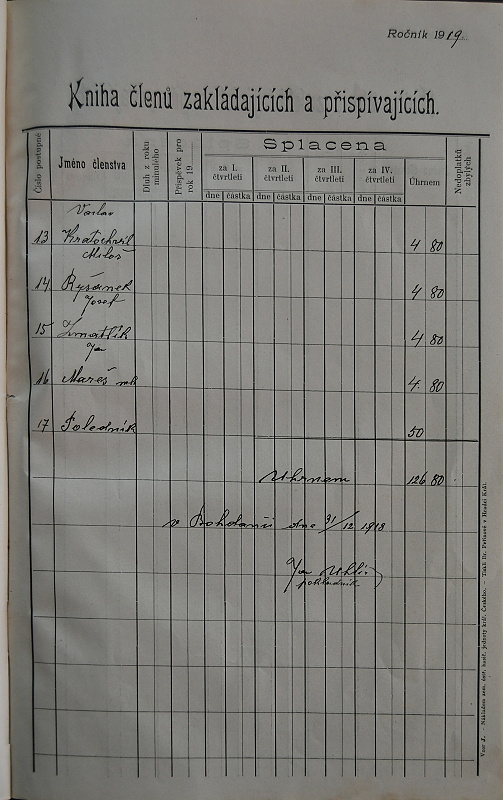 Ročník 1919.
Kniha členů zakládajících a přispívajících.
Číslo postupné
Jméno členstva
Dluh z roku minulého
Příspěvek pro rok 19
Splacena
za I. čtvrtletí
za II. čtvrtletí
za III. čtvrtletí
za IV. čtvrtletí
Úhrnem
Nedoplatků zbylých
dne částka dne částka dne částka dne částka
Václav
13 Kratochvíl 4 80
Miloš
14 Ryšánek 4 80
Josef
15 Zmatlík 4 80
Jan
16 Mareš 4 80
17 Poledník 50
Uhrnem 126 80
v Bohdanči dne 31/12 1918
Jan Uhlíř
pokladník
Vzor J. - Nákladem zem. ústř. hasič. jednoty král. Českého. - Tiskl Br. Peřinové v Hradci Král.